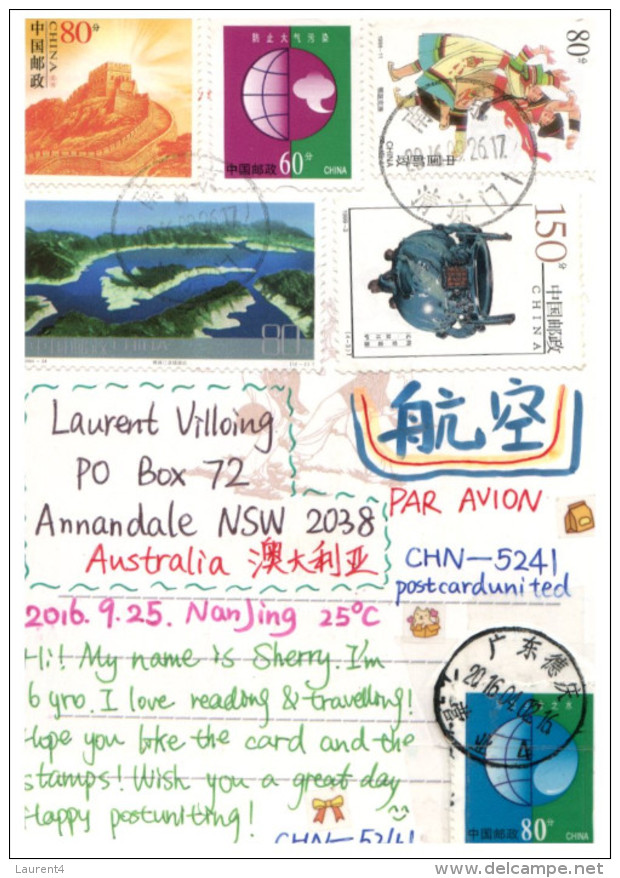 中国邮政
CHINA
80分
防止大气污染
中国邮政 60分 CHINA
80分
1999-11
CHINA
中国邮政
2016.09.26.17
80
150分
中国邮政
CHINA
Laurent Villoing
PO Box 72
Annandale NSW 2038
Australia 澳大利亚
航空
PAR AVION
CHN—5241
postcardunited
2016.9.25. NanJing 25°C
Hi! My name is Sherry. I'm
6 yro. I love reading & travelling!
Hope you like the card and the
stamps! Wish you a great day
Happy postuniting!
CHN—5241
广东德庆
2016.04.02.16
中国邮政 80分 CHINA
Laurent4